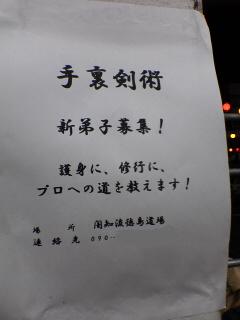 手裏剣術
新弟子募集！
護身に、修行に、
プロへの道を教えます！
場　所　闇知流徳島道場
連絡先　090‥